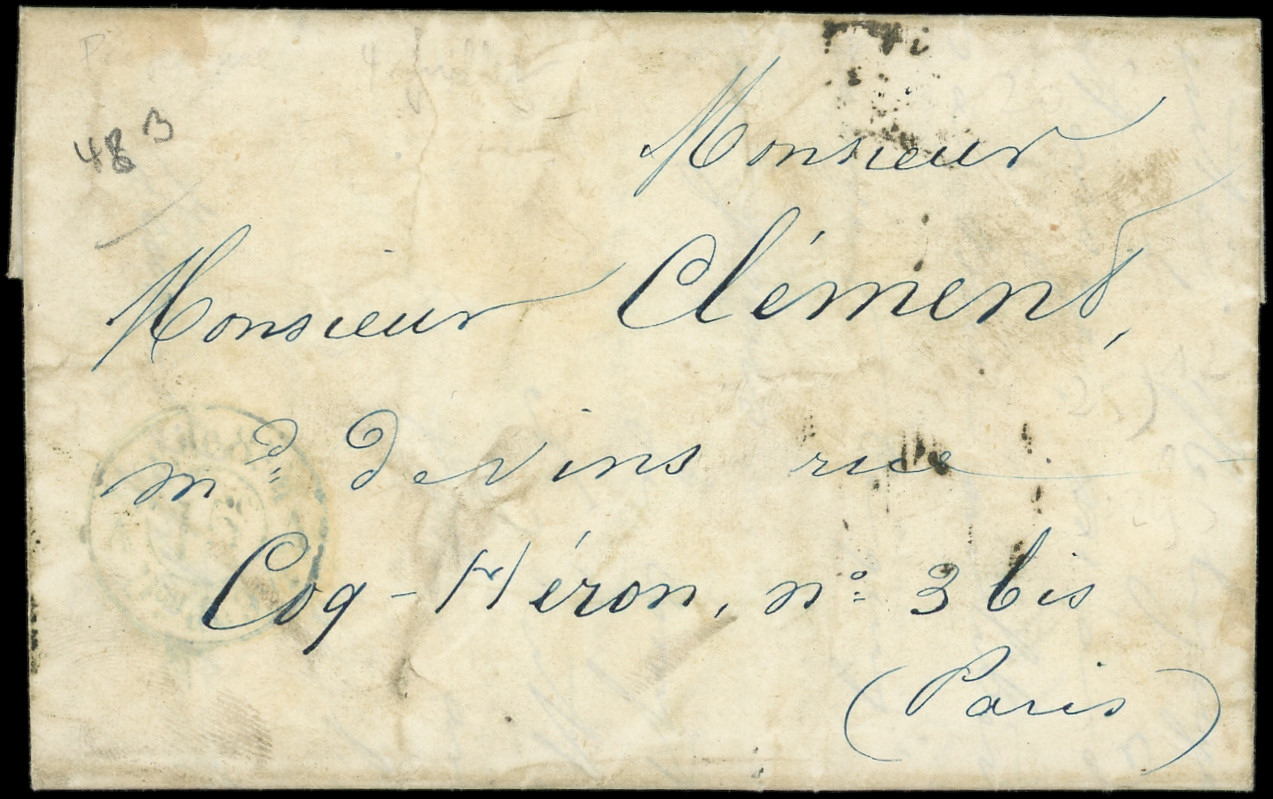 48 B
Monsieur
Monsieur Clément,
md. de vins rue
Coq-Héron, no. 3 bis
(Paris)